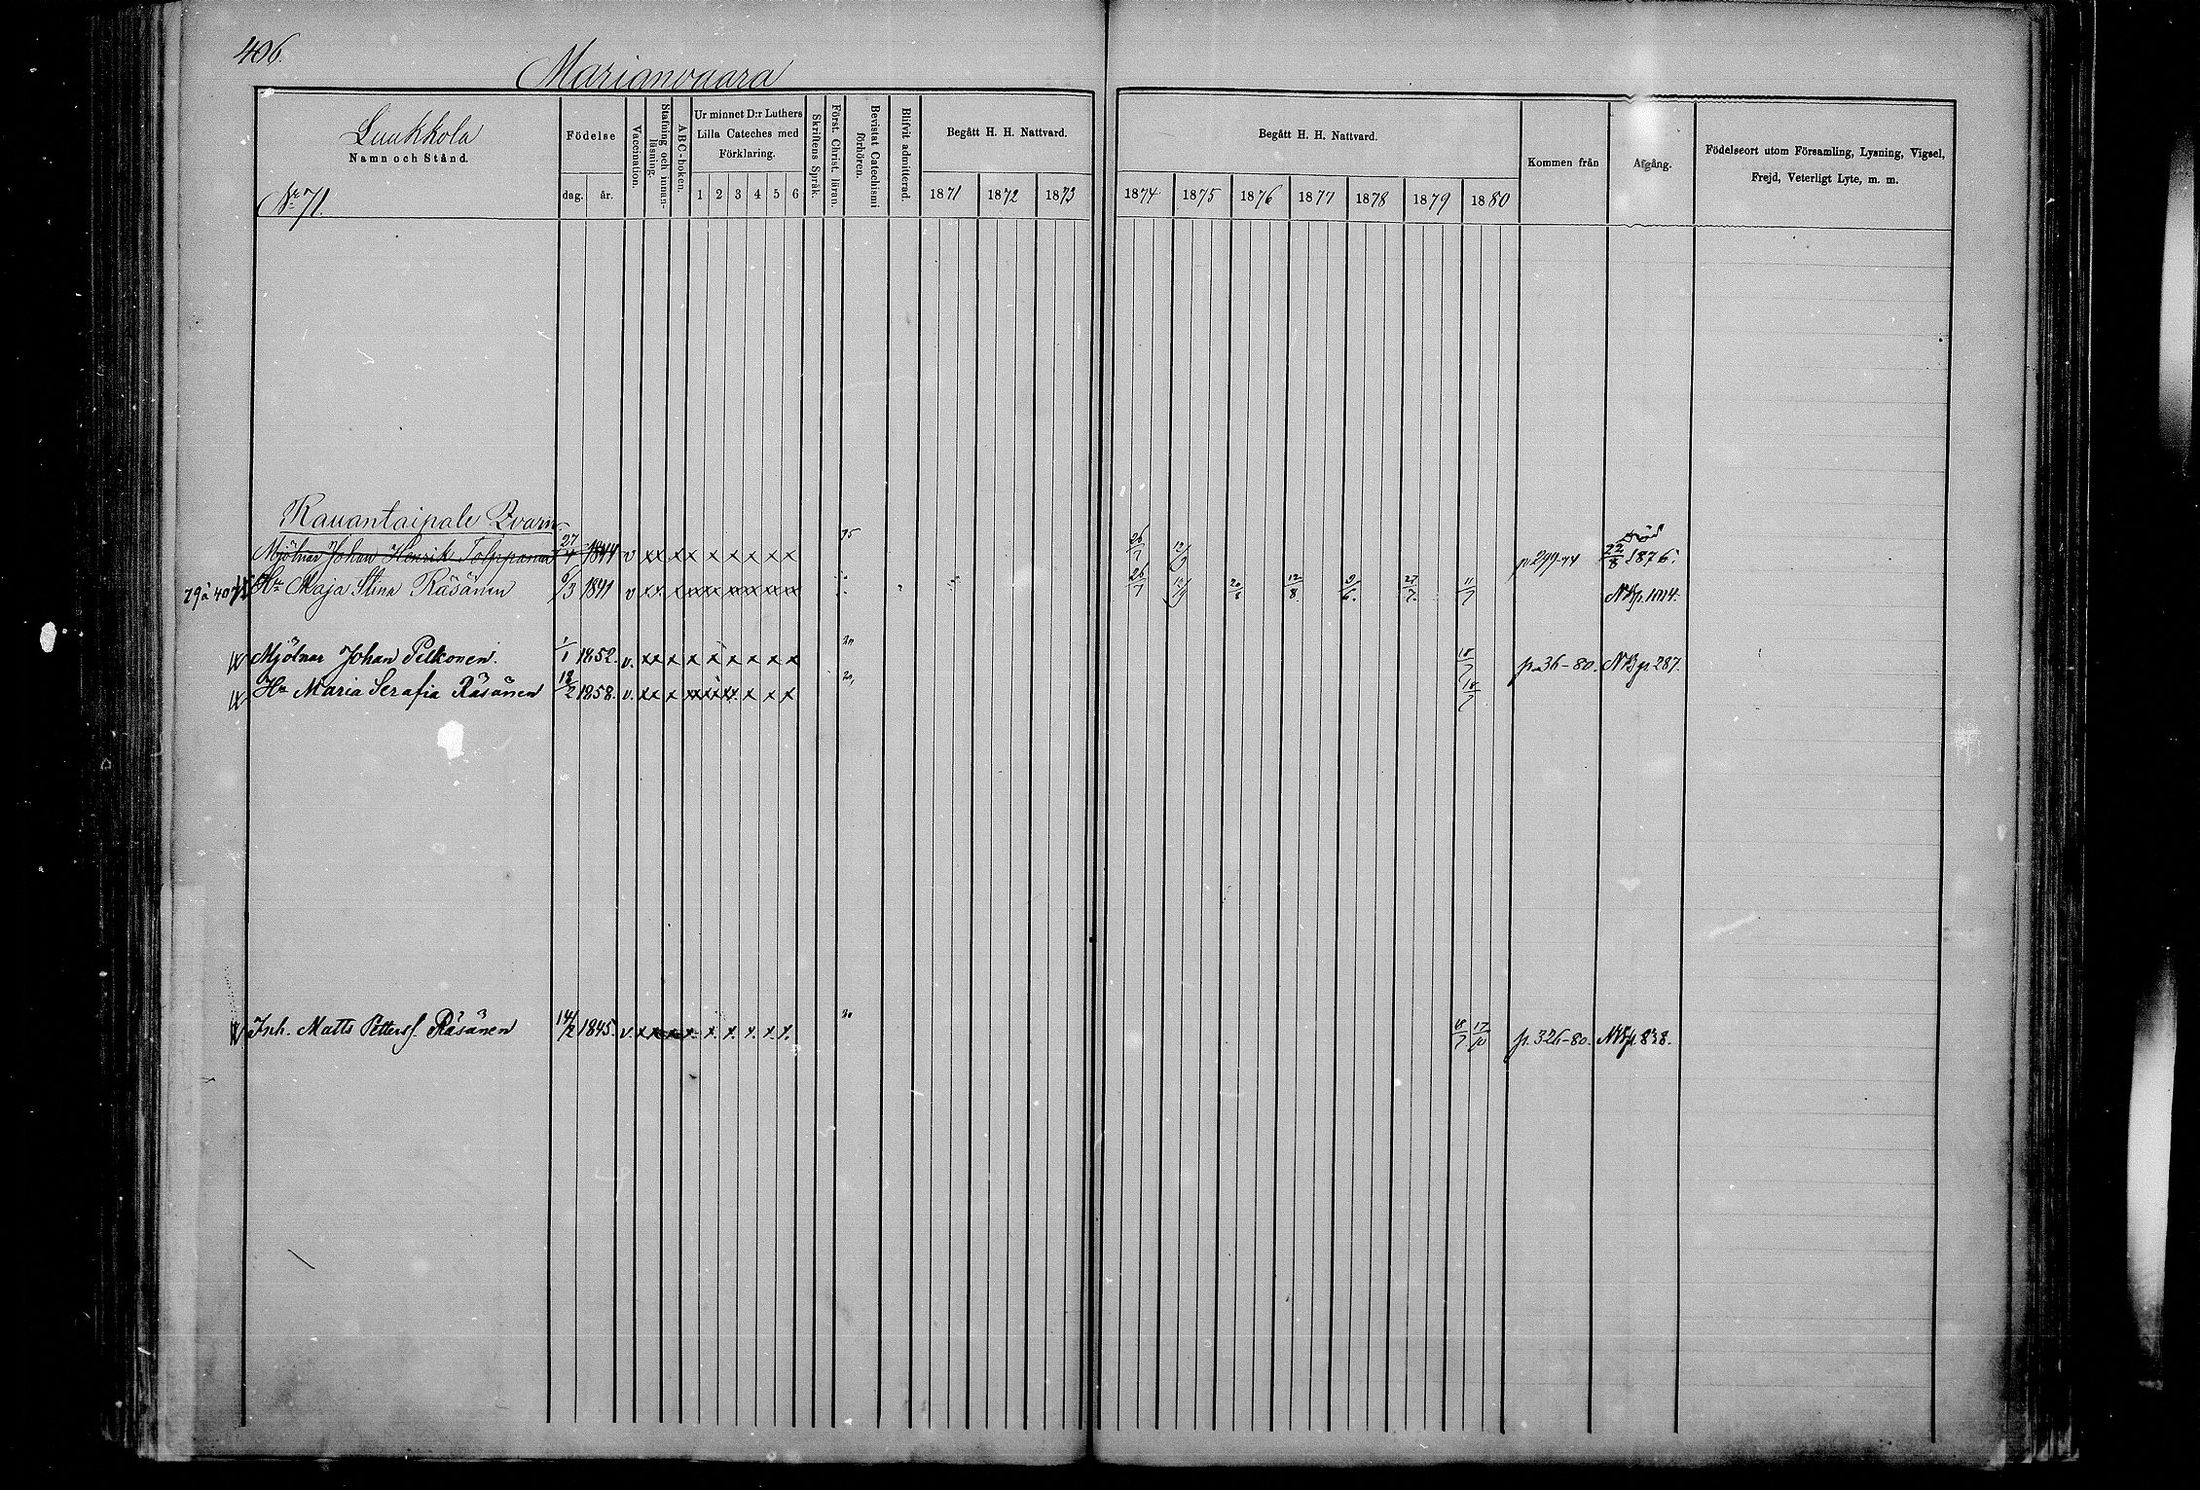 406.
Marianvaara
Luukkola
Namn och Stånd.
No 71.
Födelse
dag. år.
Vaccination.
Stafning och innan-läsning.
ABC-boken.
Ur minnet D:r Luthers
Lilla Cateches med
Förklaring.
1 2 3 4 5 6
Skriftens Språk.
Först. Christ. läran.
Bevistat Catechismi förhören.
Blifvit admitterad.
Begått H. H. Nattvard.
1871 1872 1873
Begått H. H. Nattvard.
1874 1875 1876 1877 1878 1879 1880
Kommen från
Afgång.
Födelseort utom Församling, Lysning, Vigsel,
Frejd, Veterligt Lyte, m. m.
Rauantaipale Qvarn
Mjölnar Johan Henrik Tolppanen 27/4 1844 v xx x x x x x x x 75 26/7 12/9 p 299-74 Död 22/8 1876.
79 à 407 Hu Maja Stina Räsänen 9/3 1841 v 26/7 12/9 20/8 12/8 9/6 27/7 11/7 NB p. 1014.
Mjölnar Johan Pelkonen. 1/1 1852. v. xx x x x x x x x 20 18/7 p. 36-80. NB p. 287.
Hu Maria Serafia Räsänen 18/2 1858. v. 20, 18/7
Inh. Matts Petterss. Räsänen 14/2 1845. v. 20 18/7 17/10 p. 326-80. NB p. 838.